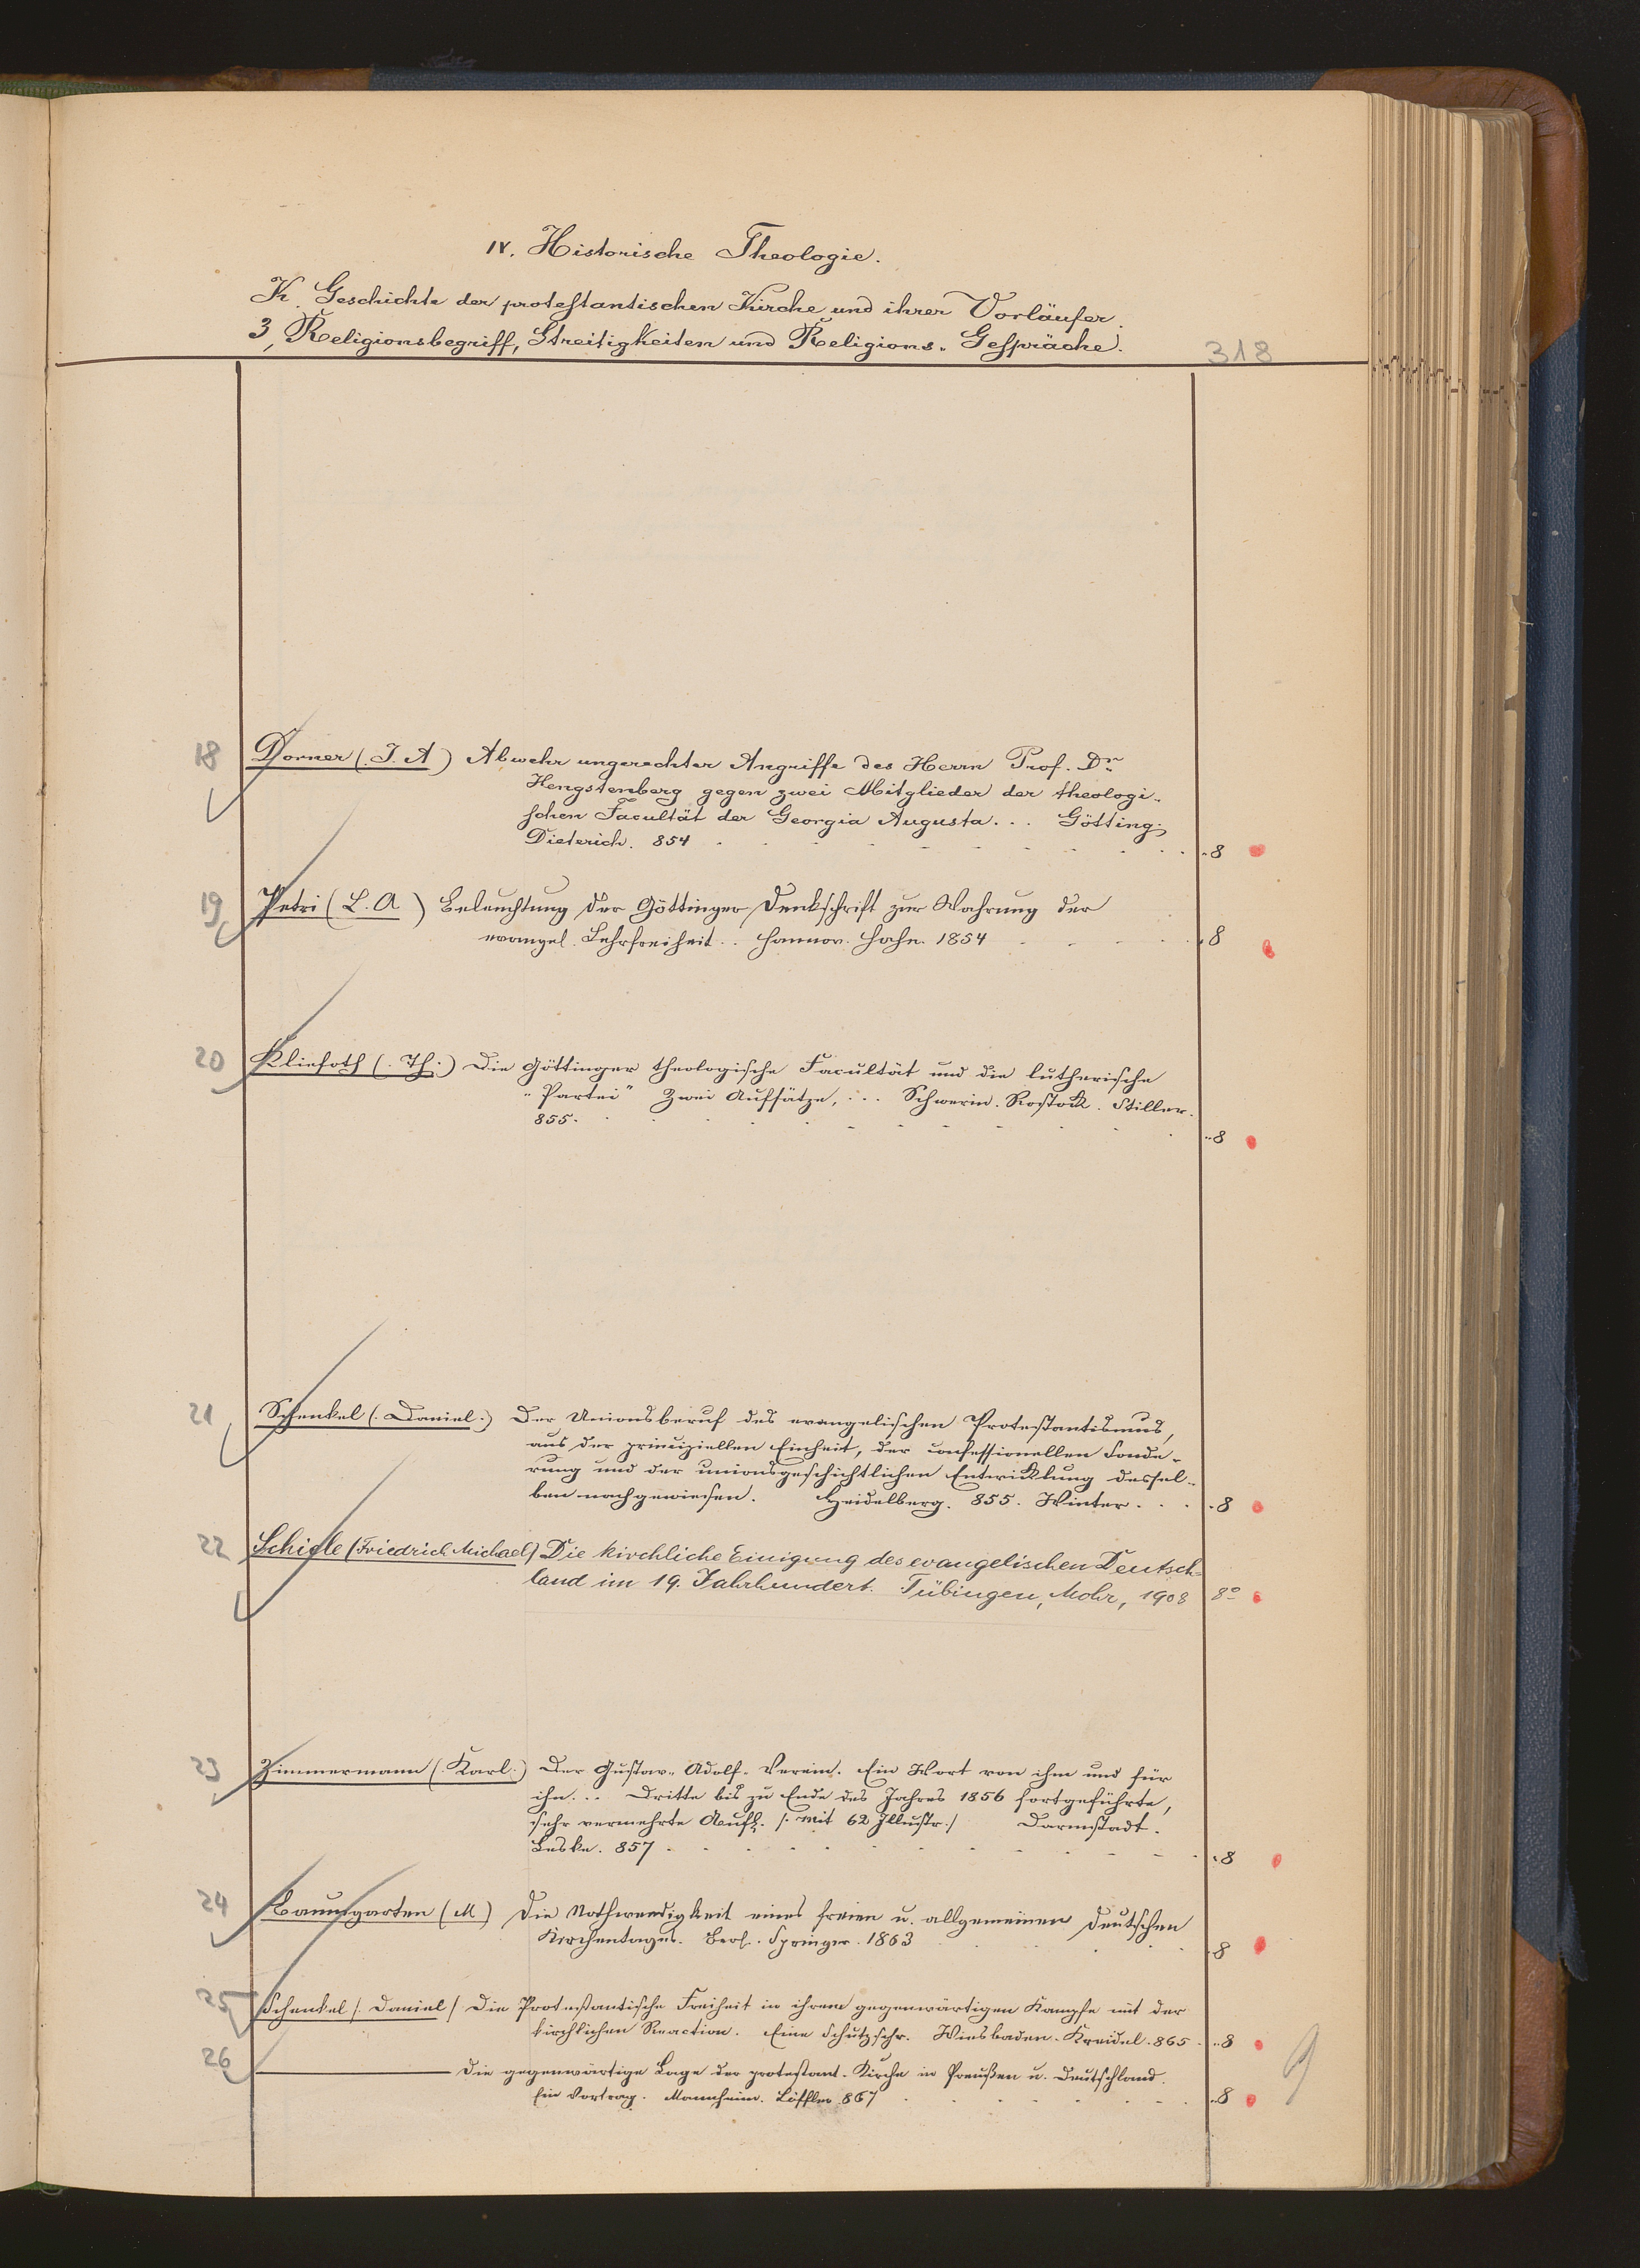 IV. Historische Theologie.
K. Geschichte der protestantischen Kirche und ihrer Vorläufer.
3, Religionsbegriff, Streitigkeiten und Religions-Gespräche.
318
18 Dorner (. J. A ) Abwehr ungerechter Angriffe des Herrn Prof. Dr.
Hengstenberg gegen zwei Mitglieder der theologi-
schen Facultät der Georgia Augusta... Götting.
Dieterich. 854 8
19 Petri (L. A ) Beleuchtung der Göttinger Denkschrift zur Wahrung der
evangel. Lehrfreiheit.. Hannov. Hahn. 1854 8
20 Kliefoth (. Th:) Die Göttinger theologische Facultät und die lutherische
"Partei" Zwei Aufsätze,... Schwerin. Rostock. Stiller.
855. 8
21 Schenkel (. Daniel.) Der Unionsberuf des evangelischen Protestantismus,
aus der principiellen Einheit, der confessionellen Sonde-
rung und der unionsgeschichtlichen Entwicklung dessel-
ben nachgewiesen. Heidelberg. 855. Winter... 8
22 Schiele (Friedrich Michael) Die kirchliche Einigung des evangelischen Deutsch-
land im 19. Jahrhundert. Tübingen, Mohr, 1908 8°
23 Zimmermann (. Karl.) Der Gustav-Adolf-Verein. Ein Wort von ihm und für
ihn... Dritte bis zu Ende des Jahres 1856 fortgeführte,
sehr vermehrte Aufl. /. mit 62 Illustr./ Darmstadt.
Leske. 857 8
24 Baumgarten (M) Die Nothwendigkeit eines freien u. allgemeinen deutschen
Kirchentages. Berl. Springer. 1863 8
25 Schenkel /. Daniel / Die Protestantische Freiheit in ihrem gegenwärtigen Kampfe mit der
kirchlichen Reaction. Eine Schutzschr. Wiesbaden. Kreidel. 865 8
26 ——— Die gegenwärtige Lage der protestant. Kirche in Preußen u. Deutschland.
Ein Vortrag. Mannheim. Löffler 867 8
9